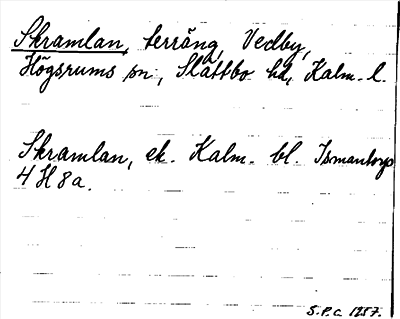 Skramlan, terräng, Vedby,
Högsrums sn, Slättbo hd, Kalm. l.
Skramlan, ek. Kalm. bl. Ismantorp
4 H 8 a.
S.P.C. 1957.